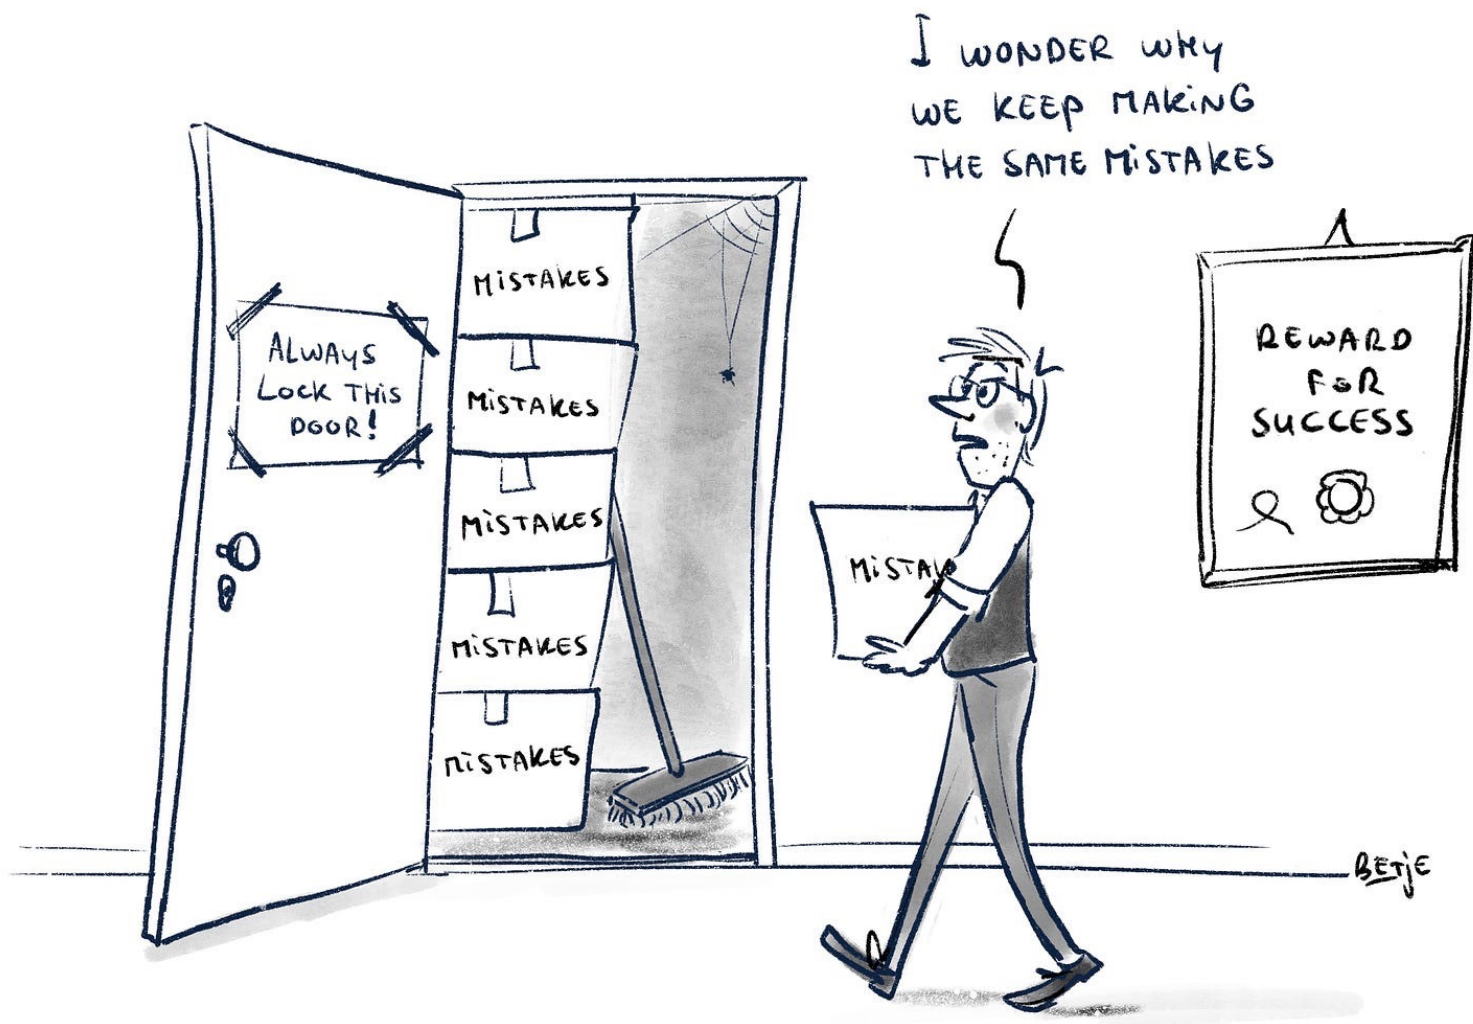 I WONDER WHY
WE KEEP MAKING
THE SAME MISTAKES
ALWAYS
LOCK THIS
DOOR!
MISTAKES
MISTAKES
MISTAKES
MISTAKES
MISTAKES
MISTAK
REWARD
FOR
SUCCESS
BETJE